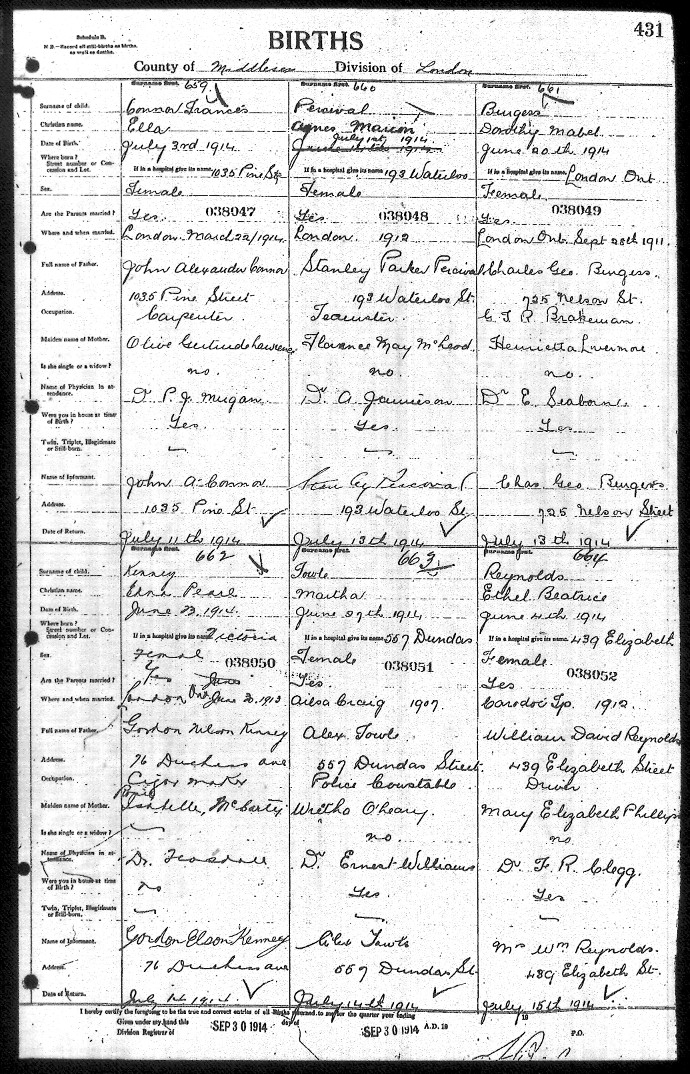 431
Schedule B.
N.B.—Record all still-births as births, as well as deaths.
BIRTHS
County of Middlesex Division of London
Surname first. 659 Surname first. 660 Surname first. 661
Surname of child. Connor Frances Percival Burgess
Christian name. Ella Agnes Marion Dorothy Mabel
July 1st, 1914
Date of Birth. July 3rd 1914 June 20th 1914
Where born? Street number or Concession and Lot. If in a hospital give its name 1035 Pine St. If in a hospital give its name 193 Waterloo If in a hospital give its name London Ont
Sex. Female Female Female
038047 038048 038049
Are the Parents married? Yes. Yes Yes
Where and when married. London March 22/1914. London 1912 London Ont. Sept 28th 1911.
Full name of Father. John Alexander Connor Stanley Parker Percival Charles Geo. Burgess.
Address. 1035 Pine Street 193 Waterloo St. 725 Nelson St.
Occupation. Carpenter. Teamster G.T.R. Brakeman.
Maiden name of Mother. Olive Gertrude Lawrence Florence May McLeod. Henrietta Livermore
Is she single or a widow? no. no. no.
Name of Physician in attendance. Dr P. J. Mugan Dr A. Jamieson Dr E. Seaborn.
Were you in house at time of Birth? Yes. Yes. Yes
Twin, Triplet, Illegitimate or Still-born.
Name of Informant. John A. Connor Percival Chas Geo Burgess
Address. 1035 Pine St 193 Waterloo St. 725 Nelson Street
Date of Return. July 11th 1914 July 13th 1914 July 13th 1914
Surname first. 662 Surname first. 663 Surname first. 664
Surname of child. Kenney Towle Reynolds
Christian name. Edna Pearl Martha Ethel Beatrice
Date of Birth. June 23. 1914. June 27th 1914 June 4th 1914
Where born? Street number or Concession and Lot. If in a hospital give its name Victoria If in a hospital give its name 557 Dundas If in a hospital give its name 439 Elizabeth
Sex. Femal Female Female
038050 038051 038052
Are the Parents married? Yes June Yes. Yes
Where and when married. London Ont June 30. 1913 Ailsa Craig 1907. Caradoc Tp. 1912.
Full name of Father. Gordon Nelson Kenney Alex. Towle William David Reynolds
Address. 76 Duchess ave 557 Dundas Street. 439 Elizabeth Street
Occupation. Cigar maker Police Constable Driver
Maiden name of Mother. Isabelle, McCartey Wretha O'Leary. Mary Elizabeth Phillips
Is she single or a widow? no. no.
Name of Physician in attendance. Dr. Teasdall Dr. Ernest Williams Dr. F. R. Clegg.
Were you in house at time of Birth? no Yes. Yes
Twin, Triplet, Illegitimate or Still-born.
Name of Informant. Gordon Elson Kenney Alex Towle Mrs Wm Reynolds.
Address. 76 Duchess ave 557 Dundas St. 439 Elizabeth St.
Date of Return. July 14 1914. July 14th 1914 July 15th 1914
I hereby certify the foregoing to be the true and correct entries of all Births returned to me for the quarter ending 19
Given under my hand this SEP 30 1914 day of SEP 30 1914 A.D. 19
Division Registrar of P.O.